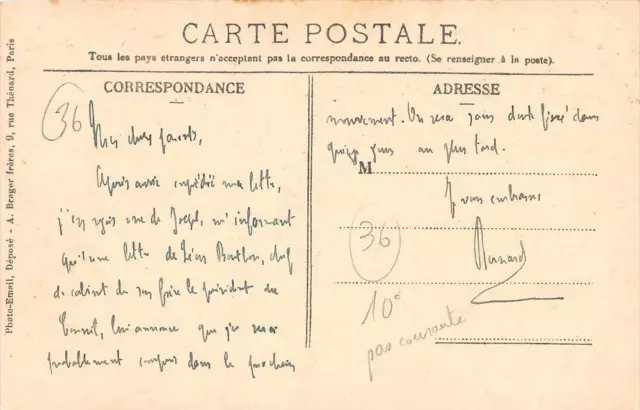 CARTE POSTALE.
Tous les pays étrangers n'acceptent pas la correspondance au recto. (Se renseigner à la poste).
CORRESPONDANCE
36
Mes chers parents,
Après avoir expédié ma lettre,
j'en reçois une de Joseph, m'informant
qu'une lettre de Léon Barthou, chef
de cabinet de son frère le président du
Conseil, lui annonce que je serai
probablement compris dans le prochain
ADRESSE
mouvement. On sera sans doute fixé dans
quinze jours au plus tard.
M
Je vous embrasse
Bernard
36
10€
pas courante
Photo-Email, Déposé - A. Breger frères, 9, rue Thénard, Paris